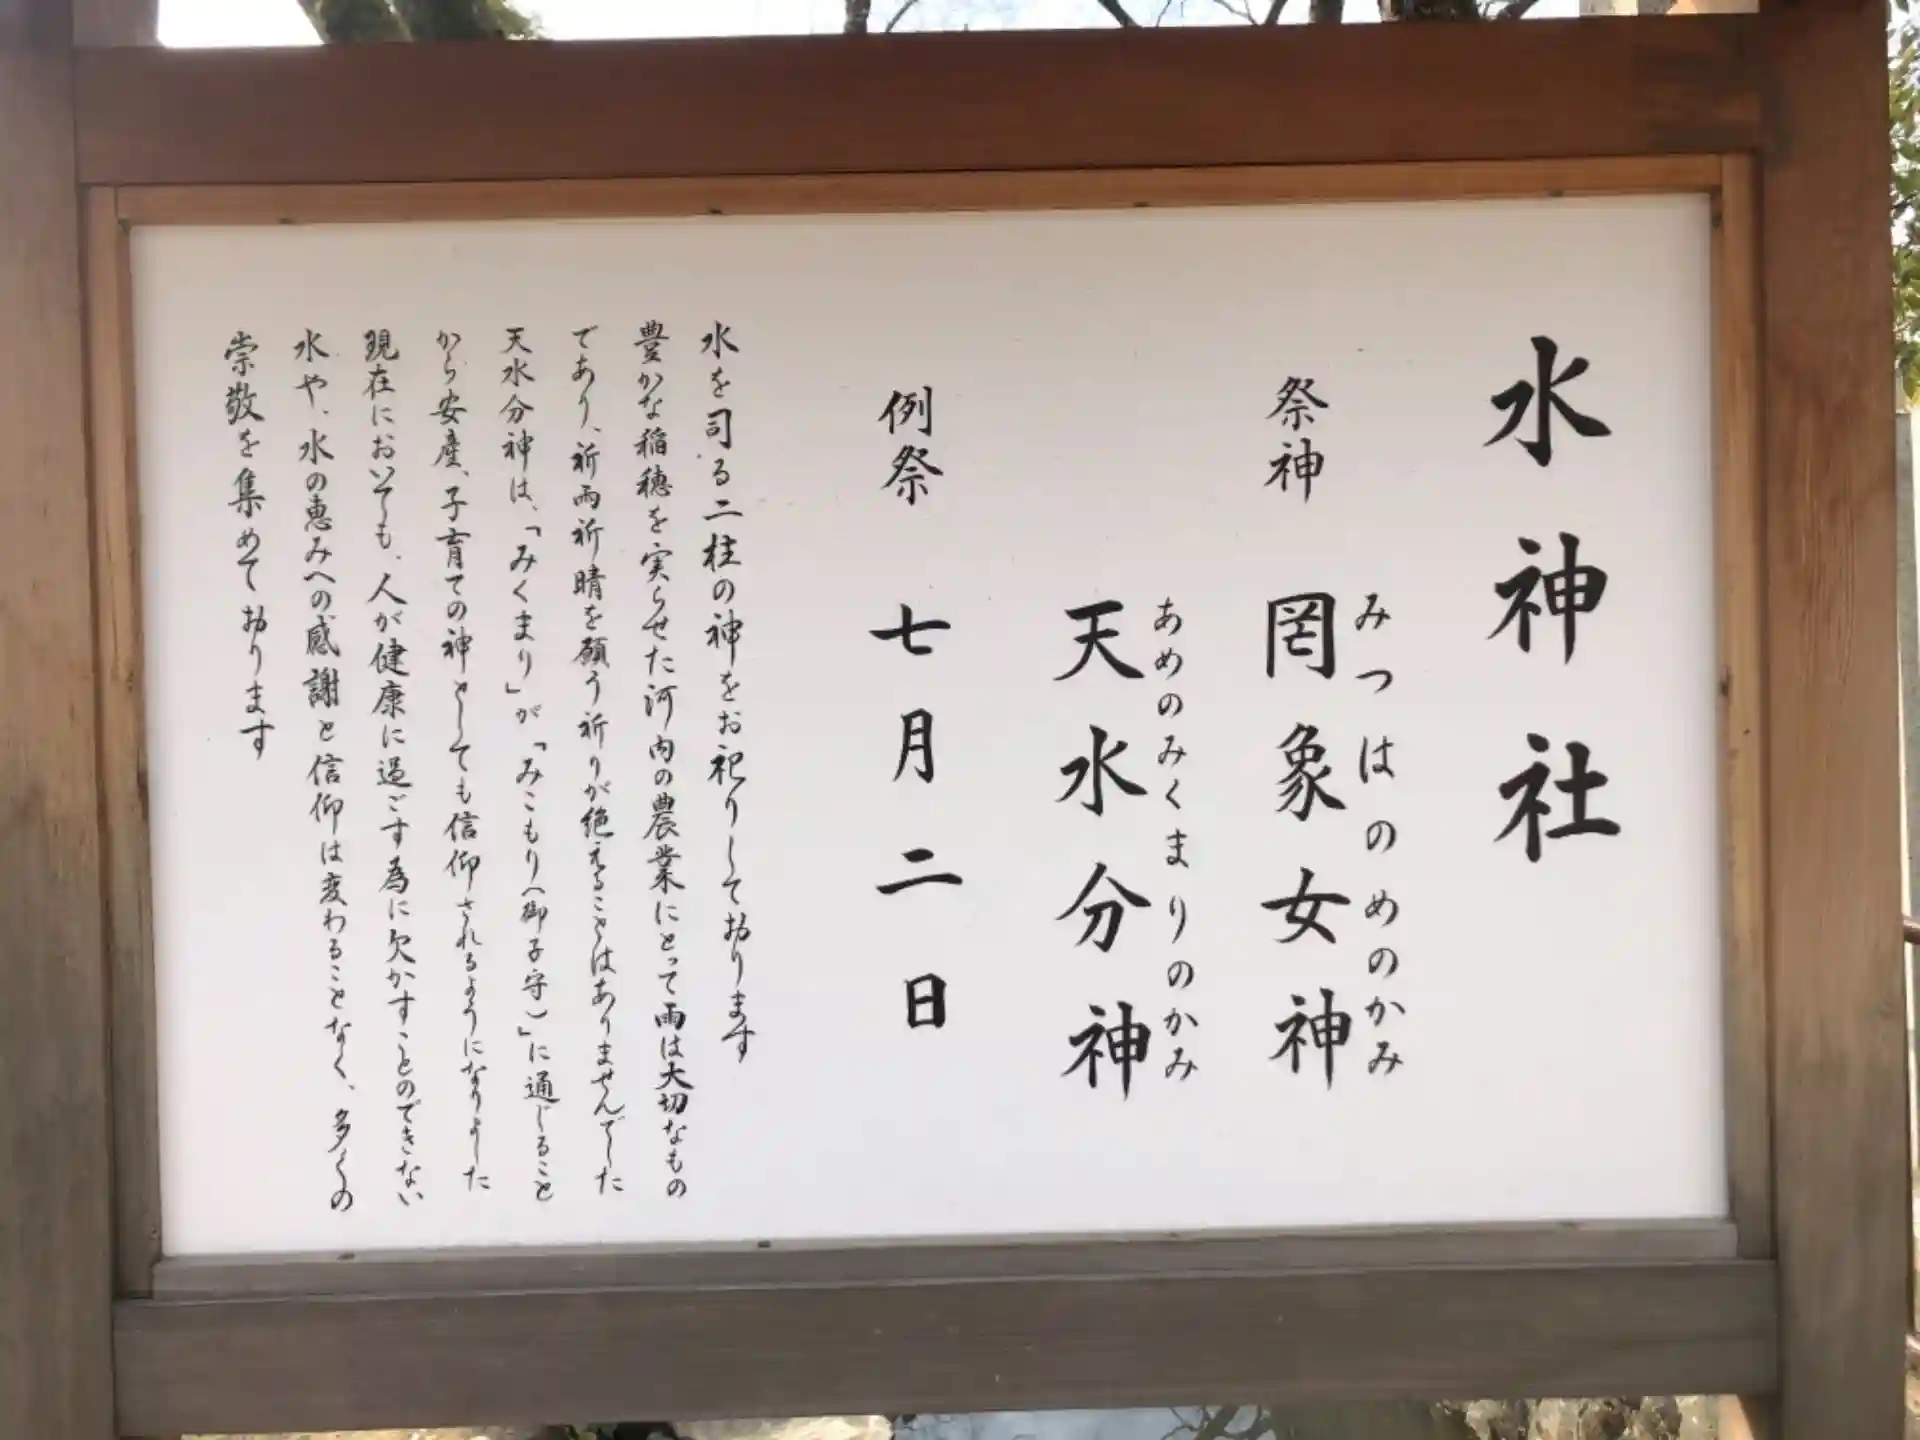 水神社
祭神
みつはのめのかみ
罔象女神
あめのみくまりのかみ
天水分神
例祭 七月二日
水を司る二柱の神をお祀りしております
豊かな稲穂を実らせた河内の農業にとって雨は大切なもの
であり、祈雨祈晴を願う祈りが絶えることはありませんでした
天水分神は、「みくまり」が「みこもり(御子守)」に通じること
から安産、子育ての神としても信仰されるようになりました
現在においても、人が健康に過ごす為に欠かすことのできない
水や、水の恵みへの感謝と信仰は変わることなく、多くの
崇敬を集めております